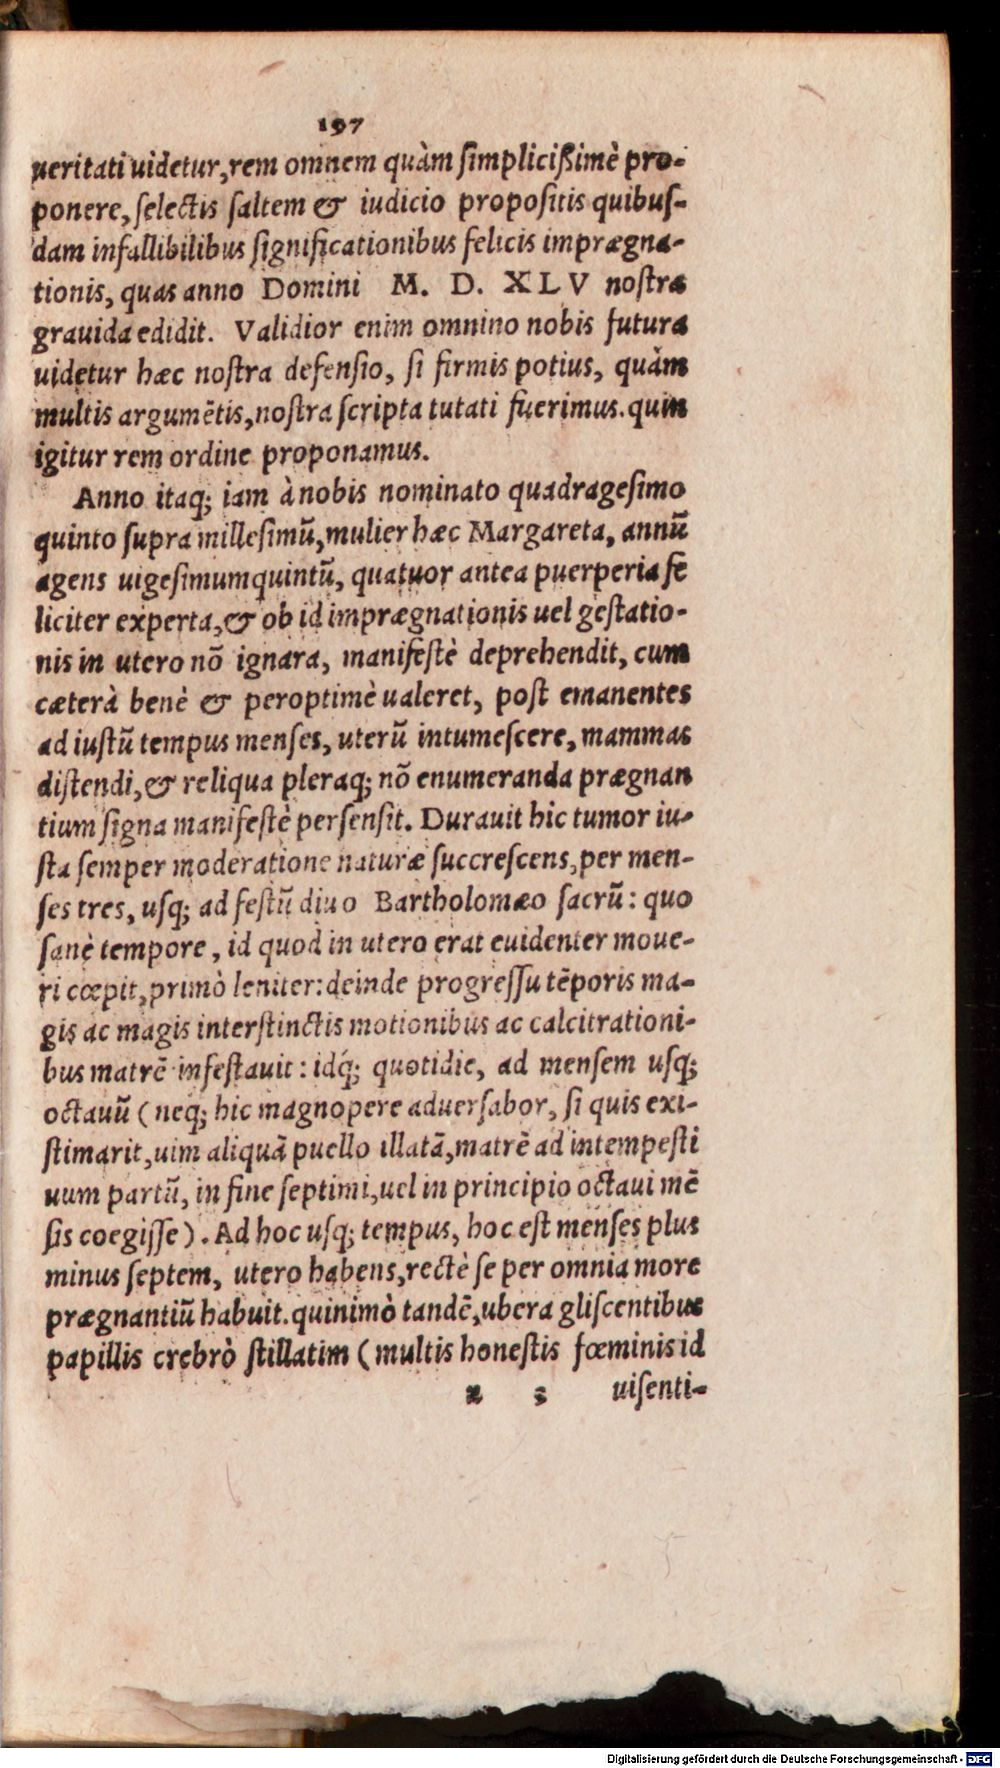 197
ueritati uidetur, rem omnem quàm ſimpliciſsimè pro-
ponere, ſelectis ſaltem & iudicio propoſitis quibuſ-
dam infallibilibus ſignificationibus felicis imprægna-
tionis, quas anno Domini M. D. XLV noſtra
grauida edidit. Validior enim omnino nobis futura
uidetur hæc noſtra defenſio, ſi firmis potius, quàm
multis argumẽtis, noſtra ſcripta tutati fuerimus. quin
igitur rem ordine proponamus.
Anno itaq; iam à nobis nominato quadrageſimo
quinto ſupra milleſimũ, mulier hæc Margareta, annũ
agens uigeſimumquintũ, quatuor antea puerperia fe
liciter experta, & ob id imprægnationis uel geſtatio-
nis in utero nõ ignara, manifeſtè deprehendit, cum
cæterà benè & peroptimè ualeret, poſt emanentes
ad iuſtũ tempus menſes, uterũ intumeſcere, mammas
diſtendi, & reliqua pleraq; nõ enumeranda prægnan
tium ſigna manifeſtè perſenſit. Durauit hic tumor iu-
ſta ſemper moderatione naturæ ſuccreſcens, per men-
ſes tres, uſq; ad feſtũ diuo Bartholomæo ſacrũ: quo
ſanè tempore, id quod in utero erat euidenter moue-
ri cœpit, primò leniter: deinde progreſſu tẽporis ma-
gis ac magis interſtinctis motionibus ac calcitrationi-
bus matrẽ infeſtauit: idq́; quotidie, ad menſem uſq;
octauũ (neq; hic magnopere aduerſabor, ſi quis exi-
ſtimarit, uim aliquã puello illatã, matrẽ ad intempeſti
uum partũ, in fine ſeptimi, uel in principio octaui mẽ
ſis coegiſſe). Ad hoc uſq; tempus, hoc eſt menſes plus
minus ſeptem, utero habens, rectè ſe per omnia more
prægnantiũ habuit. quinimò tandẽ, ubera gliſcentibus
papillis crebrò ſtillatim (multis honeſtis fœminis id
uiſenti-
Digitalisierung gefördert durch die Deutsche Forschungsgemeinschaft - DFG